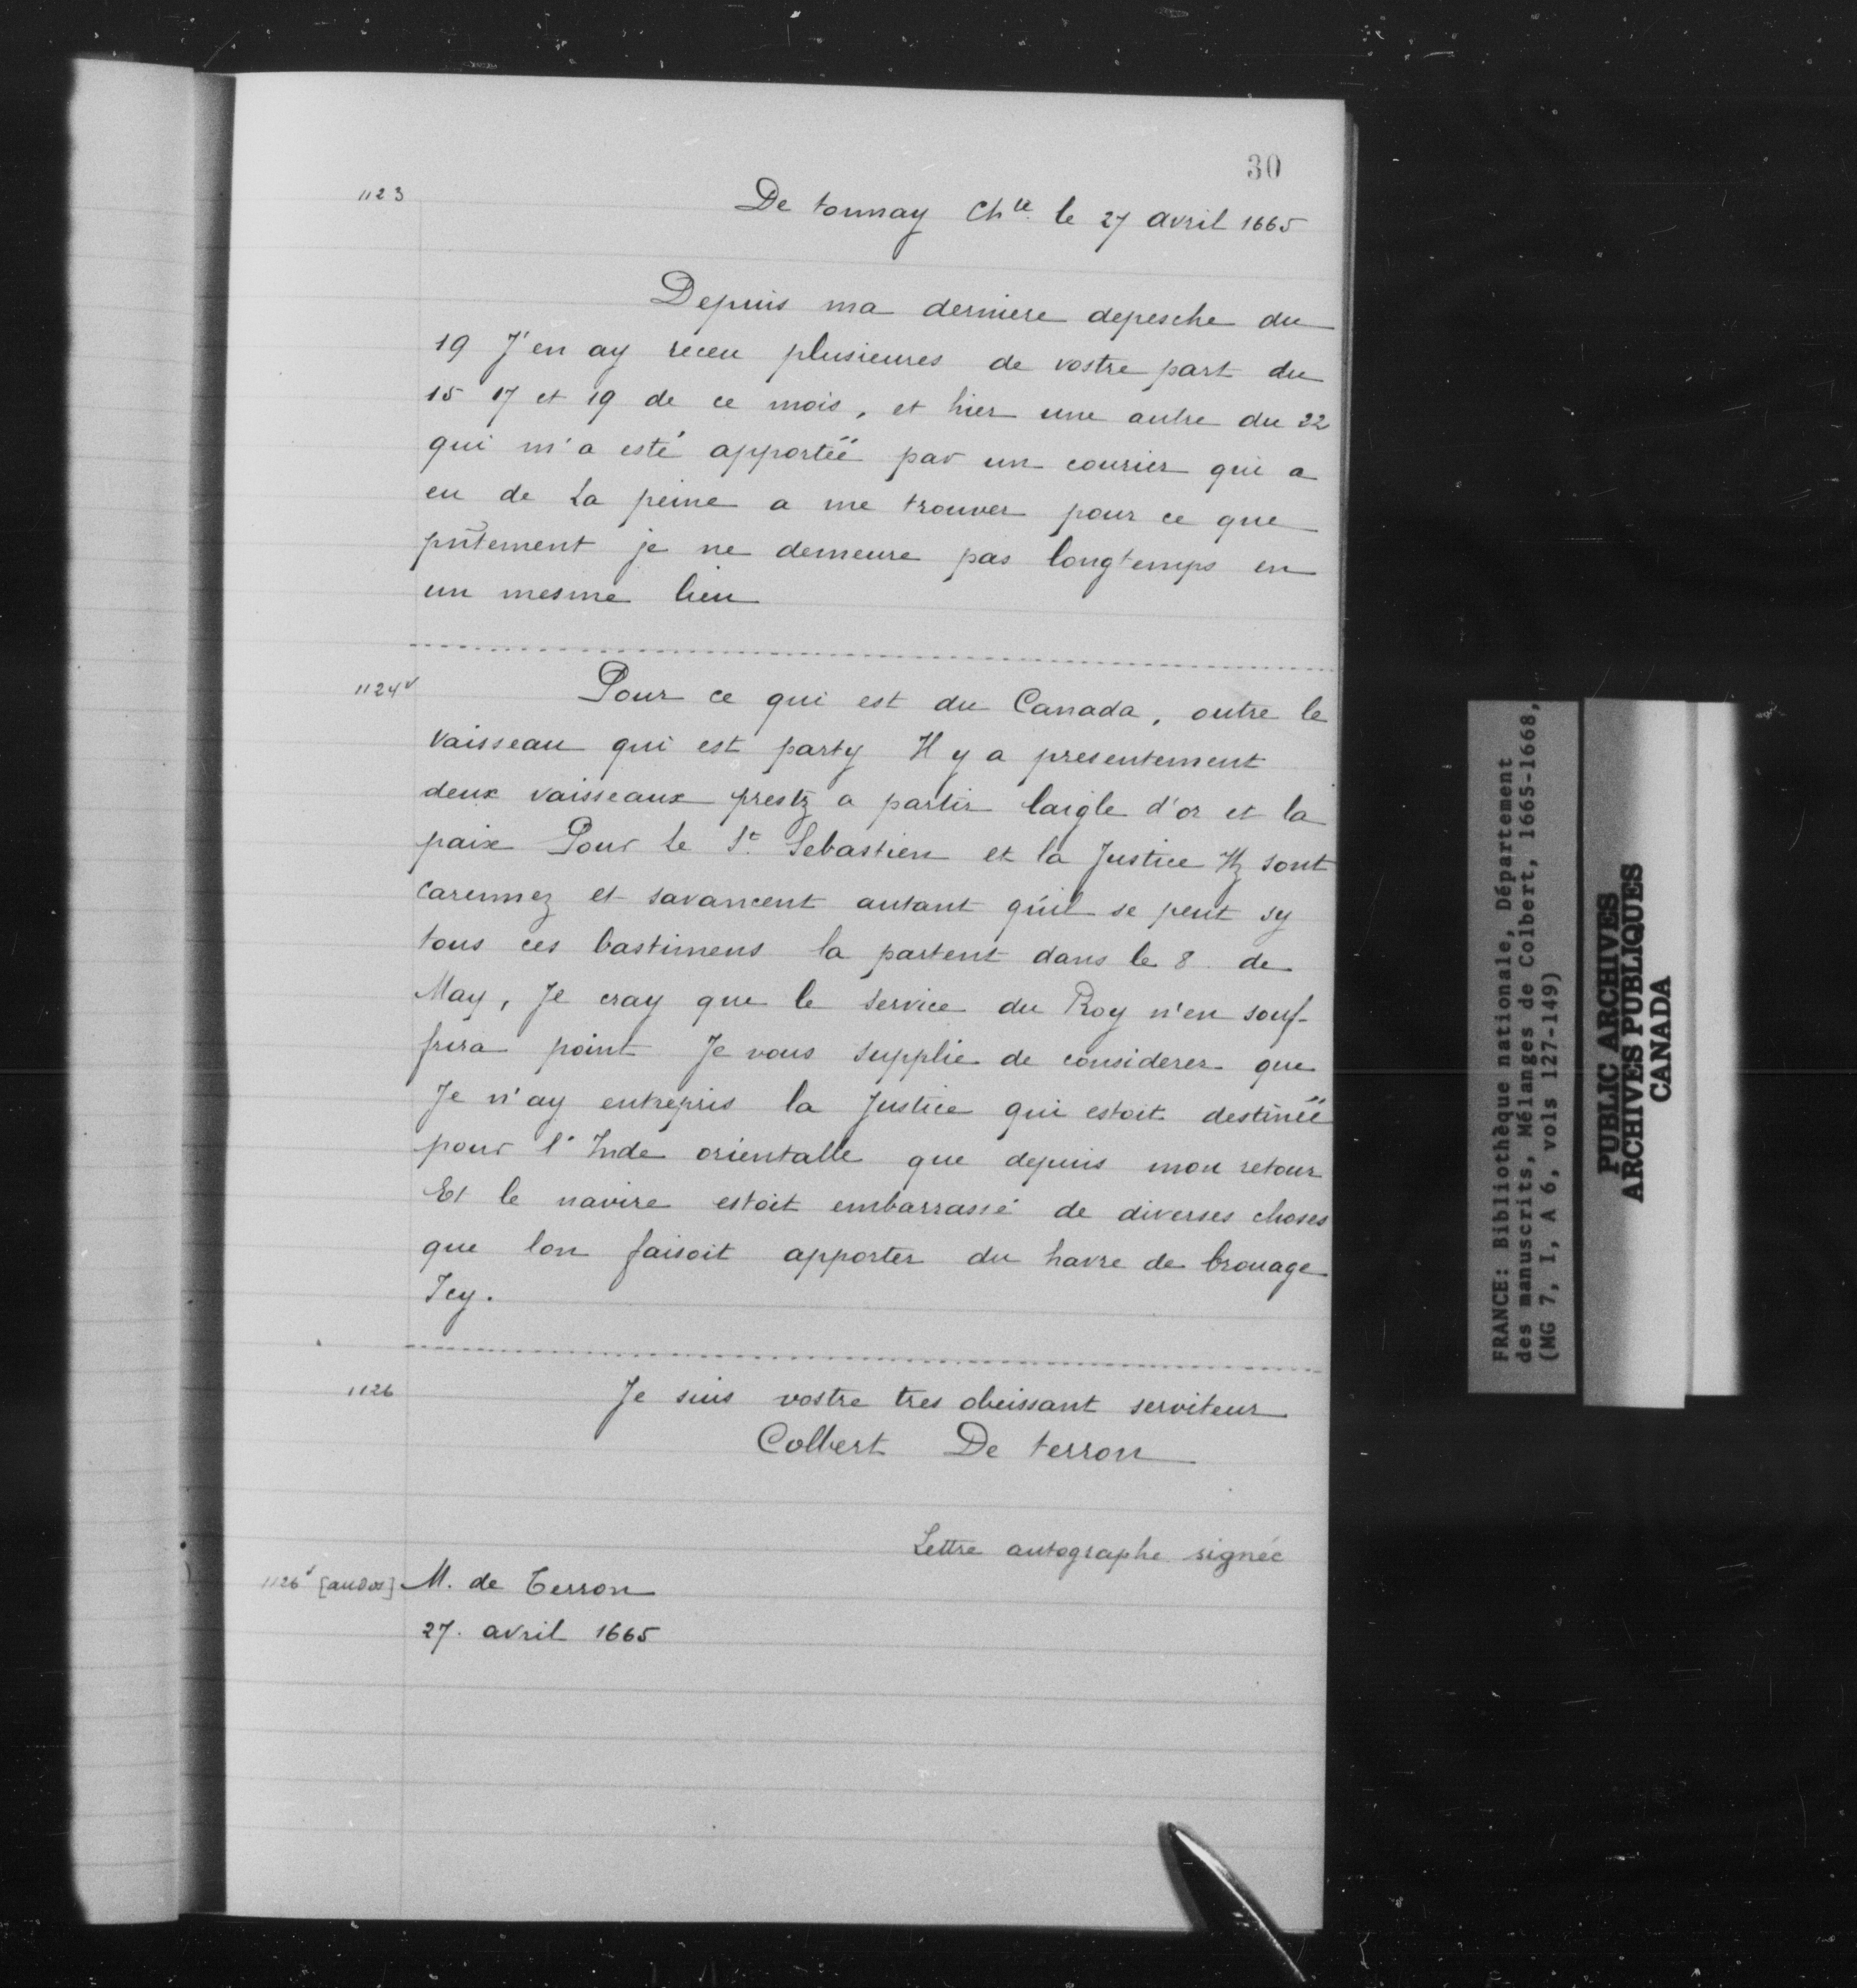 30
1123
De tonnay Chte le 27 avril 1665
Depuis ma derniere depesche du
19 J'en ay receu plusieures de vostre part du
15 17 et 19 de ce mois, et hier une autre du 22
qui m'a esté apportéë par un courier qui a
eu de La peine a me trouver pour ce que
pñtement je ne demeure pas longtemps en
un mesme lieu
1124v
Pour ce qui est du Canada, outre le
vaisseau qui est party Il y a presentement
deux vaisseaux prestz a partir laigle d'or et la
paix Pour Le St. Sebastien et la Justice Ilz sont
carennez et savancent autant qu'il se peut sy
tous ces bastimens la partent dans le 8. de
May, Je cray que le service du Roy n'en souf-
frira point Je vous supplie de considerer que
Je n'ay entrepris la Justice qui estoit destinéë
pour l'Inde orientalle que depuis mon retour
Et le navire estoit embarrassé de diverses choses
que lon faisoit apporter du havre de brouage
Icy.
1126
Je suis vostre tres obeissant serviteur
Colbert De terron
Lettre autographe signée
1126v [au dos] M. de Terron
27. avril 1665
FRANCE: Bibliothèque nationale, Département
des manuscrits, Mélanges de Colbert, 1665-1668,
(MG 7, I, A 6, vols 127-149)
PUBLIC ARCHIVES
ARCHIVES PUBLIQUES
CANADA